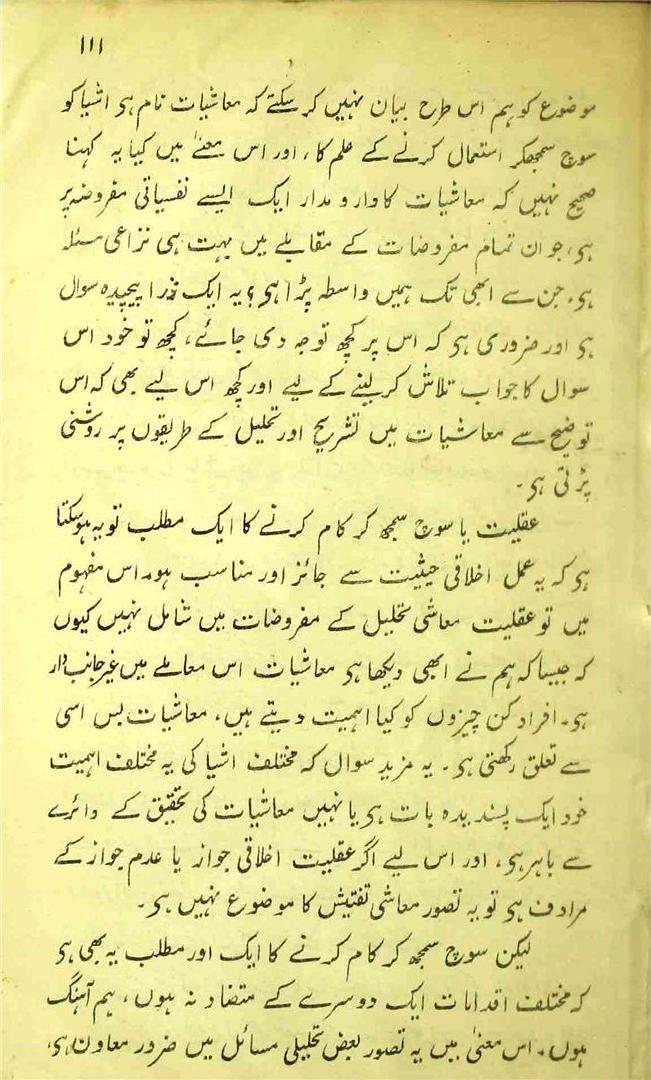 ۱۱۱
موضوع کو ہم اس طرح بیان نہیں کر سکتے کہ معاشیات نام ہی اشیا کو
سوچ سمجھکر استعمال کرنے کے علم کا، اور اس معنیٰ میں کیا یہ کہنا
صحیح نہیں کہ معاشیات کا دار و مدار ایک ایسے نفسیاتی مفروضہ پر
ہی، جو ان تمام مفروضات کے مقابلے میں بہت ہی نزاعی مسئلہ
ہی، جن سے ابھی تک ہمیں واسطہ پڑا ہی؟ یہ ایک ذرا پیچیدہ سوال
ہی اور ضروری ہی کہ اس پر کچھ توجہ دی جائے، کچھ تو خود اس
سوال کا جواب تلاش کر لینے کے لیے اور کچھ اس لیے بھی کہ اس
توضیح سے معاشیات میں تشریح اور تحلیل کے طریقوں پر روشنی
پڑتی ہی۔
عقلیت یا سوچ سمجھ کر کام کرنے کا ایک مطلب تو یہ ہو سکتا
ہی کہ یہ عمل اخلاقی حیثیت سے جائز اور مناسب ہو۔ اس مفہوم
میں تو عقلیت معاشی تحلیل کے مفروضات میں شامل نہیں کیوں
کہ جیسا کہ ہم نے ابھی دیکھا ہی معاشیات اس معاملے میں غیر جانب دار
ہی۔ افراد کن چیزوں کو کیا اہمیت دیتے ہیں، معاشیات بس اسی
سے تعلق رکھتی ہی۔ یہ مزید سوال کہ مختلف اشیا کی یہ مختلف اہمیت
خود ایک پسندیدہ بات ہی یا نہیں معاشیات کی تحقیق کے دائرے
سے باہر ہی، اور اس لیے اگر عقلیت اخلاقی جواز یا عدم جواز کے
مرادف ہی تو یہ تصور معاشی تفتیش کا موضوع نہیں ہی۔
لیکن سوچ سمجھ کر کام کرنے کا ایک اور مطلب یہ بھی ہی
کہ مختلف اقدامات ایک دوسرے کے متضاد نہ ہوں، ہم آہنگ
ہوں۔ اس معنیٰ میں یہ تصور بعض تحلیلی مسائل میں ضرور معاون ہی،